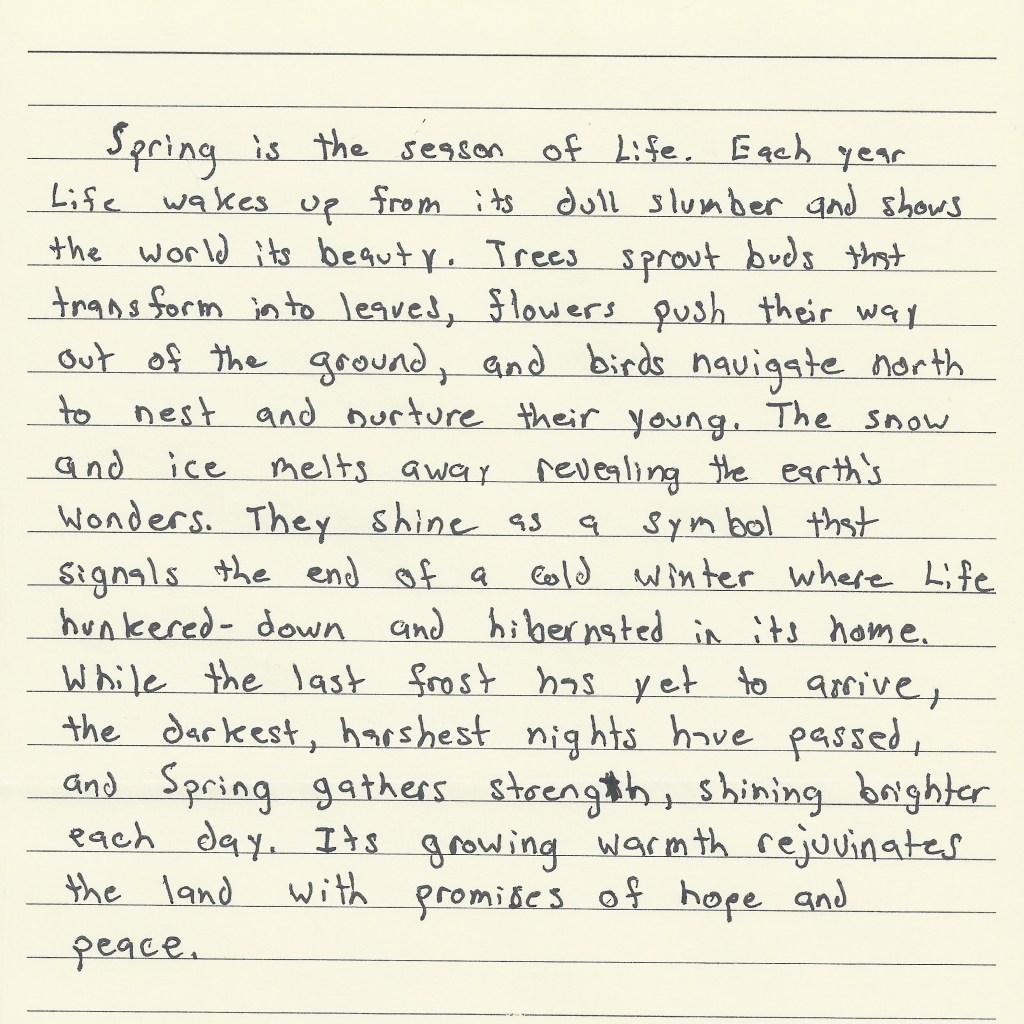 Spring is the season of Life. Each year
Life wakes up from its dull slumber and shows
the world its beauty. Trees sprout buds that
transform into leaves, flowers push their way
out of the ground, and birds navigate north
to nest and nurture their young. The snow
and ice melts away revealing the earth's
wonders. They shine as a symbol that
signals the end of a cold winter where Life
hunkered-down and hibernated in its home.
While the last frost has yet to arrive,
the darkest, harshest nights have passed,
and Spring gathers strength, shining brighter
each day. Its growing warmth rejuvinates
the land with promises of hope and
peace.